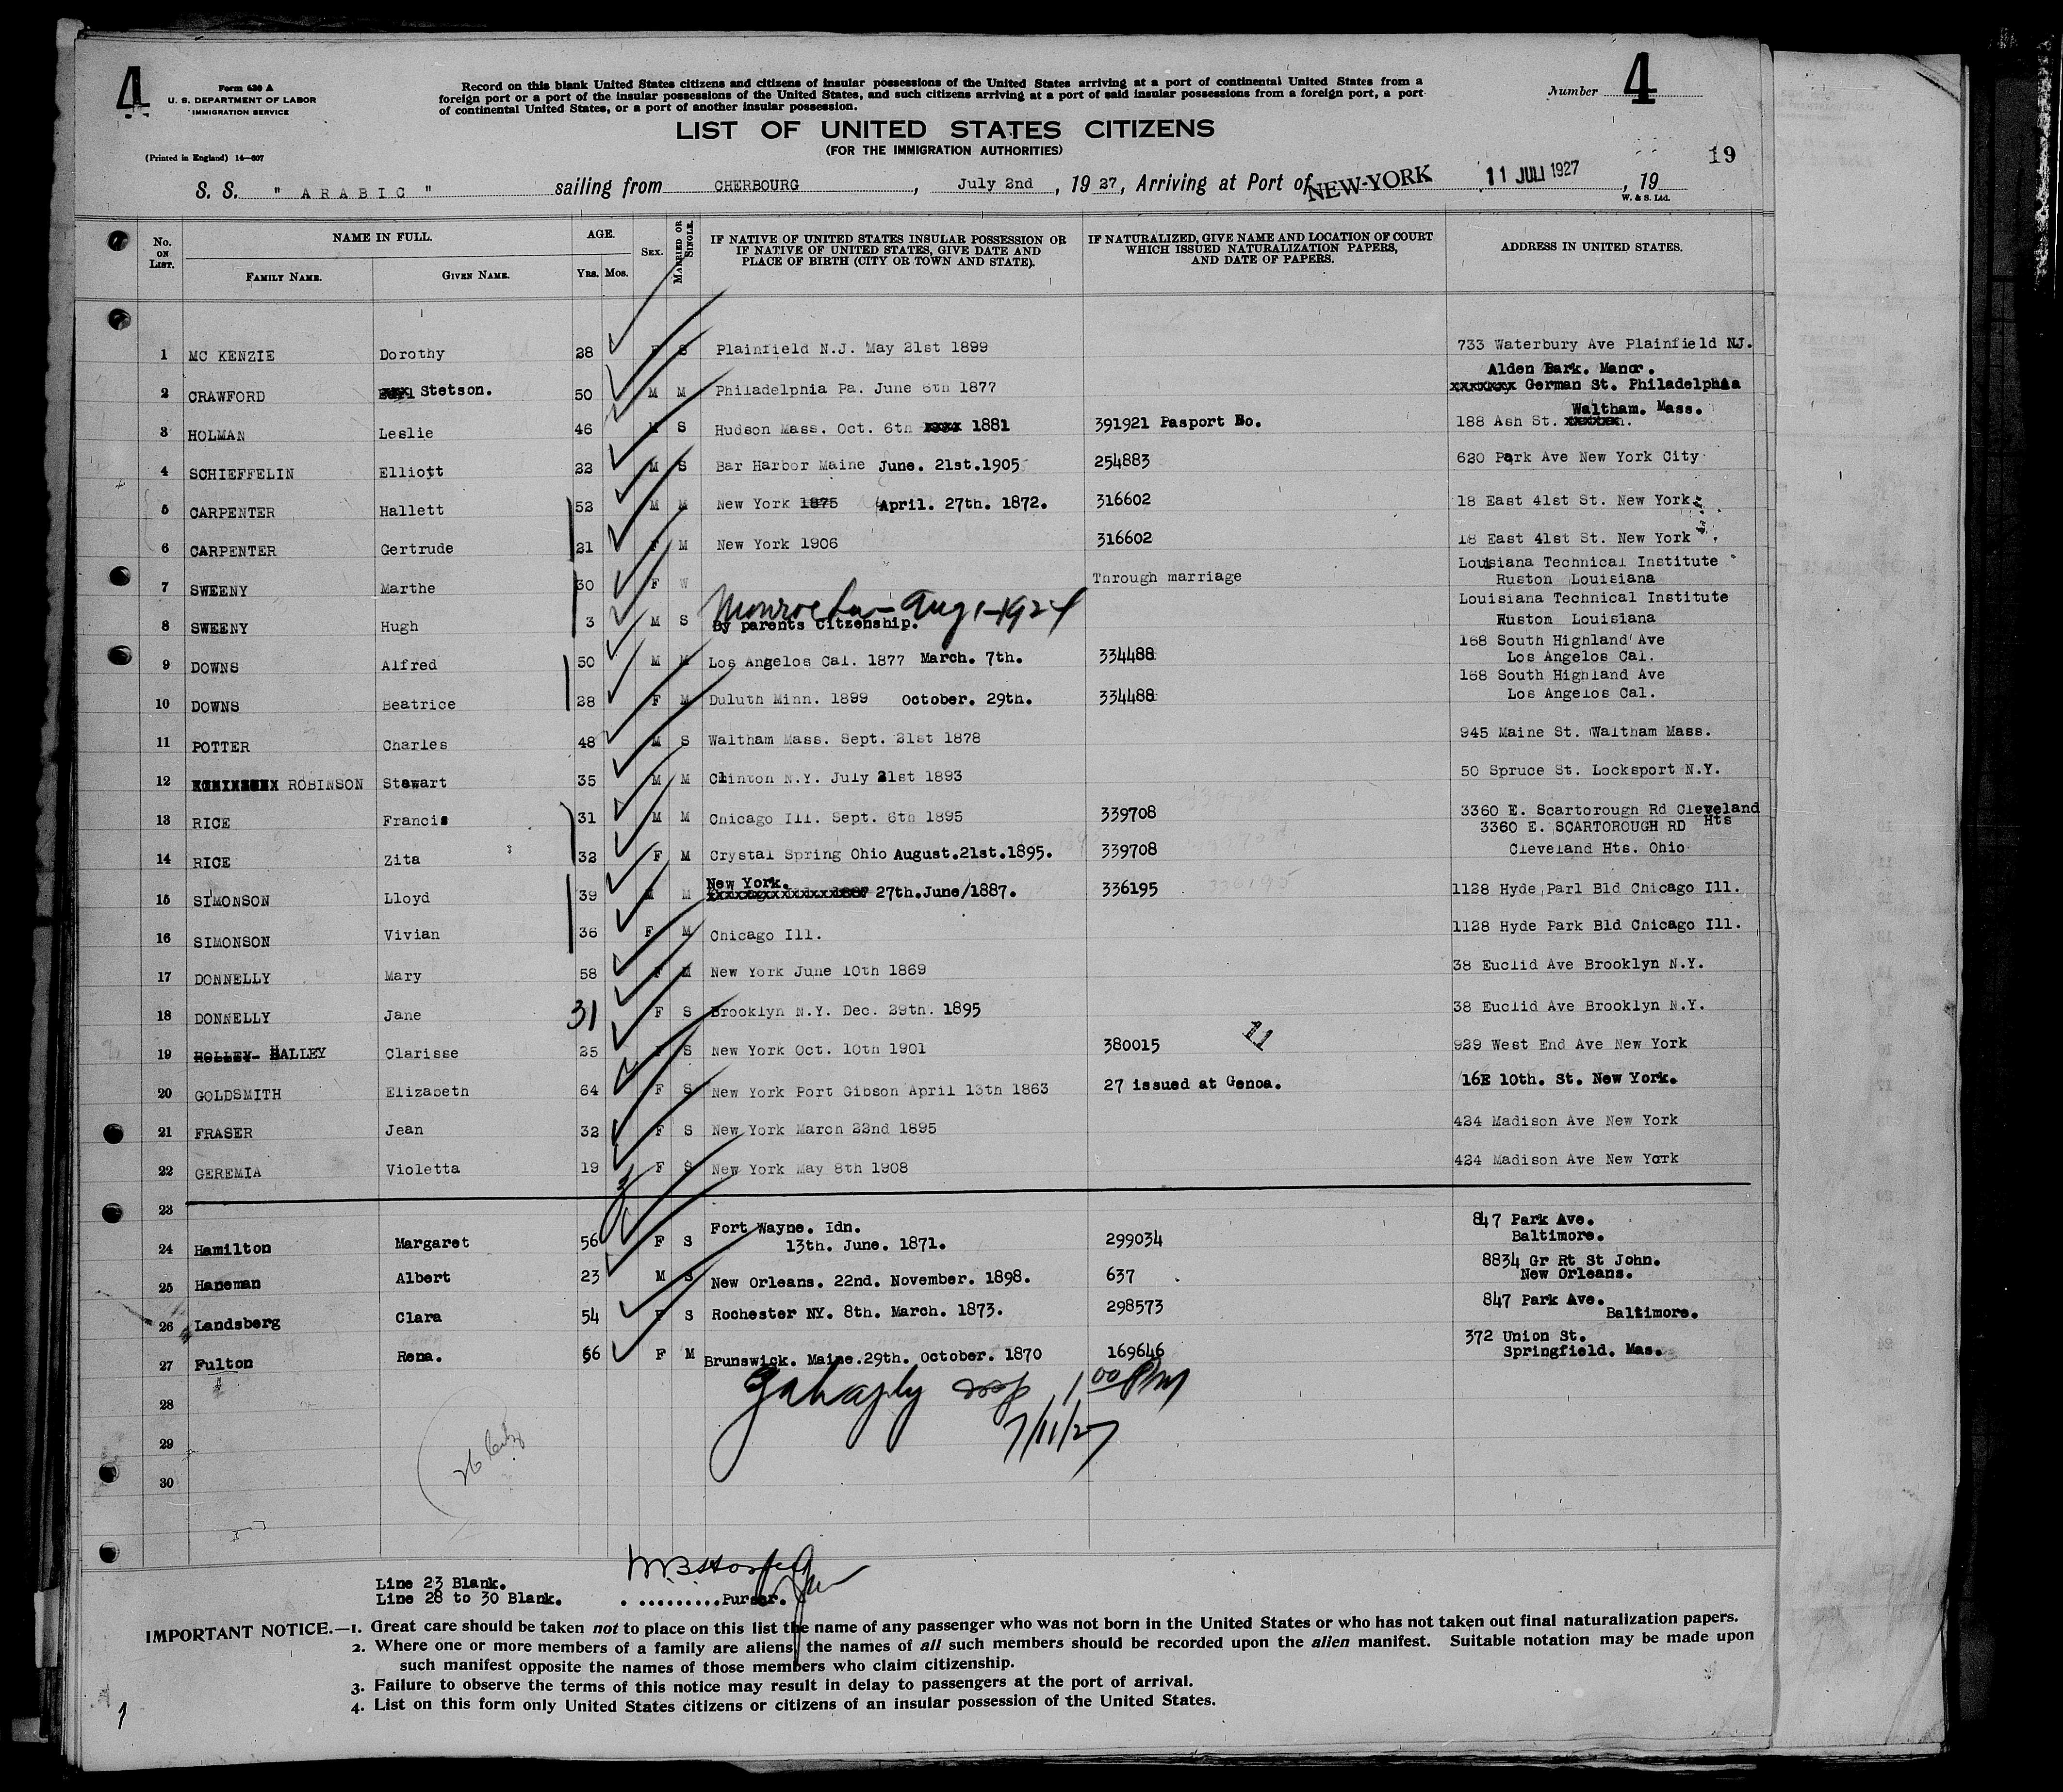 4
Form 630 A
U. S. DEPARTMENT OF LABOR
IMMIGRATION SERVICE
(Printed in England) 14—607
Record on this blank United States citizens and citizens of insular possessions of the United States arriving at a port of continental United States from a
foreign port or a port of the insular possessions of the United States, and such citizens arriving at a port of said insular possessions from a foreign port, a port
of continental United States, or a port of another insular possession.
Number 4
LIST OF UNITED STATES CITIZENS
(FOR THE IMMIGRATION AUTHORITIES)
19
S. S. " ARABIC " sailing from CHERBOURG, July 2nd, 1927, Arriving at Port of NEW-YORK 11 JULI 1927, 19
W. & S. Ltd.
No. ON LIST. NAME IN FULL. FAMILY NAME. GIVEN NAME. AGE. YRS. MOS. SEX. MARRIED OR SINGLE. IF NATIVE OF UNITED STATES INSULAR POSSESSION OR IF NATIVE OF UNITED STATES, GIVE DATE AND PLACE OF BIRTH (CITY OR TOWN AND STATE). IF NATURALIZED, GIVE NAME AND LOCATION OF COURT WHICH ISSUED NATURALIZATION PAPERS, AND DATE OF PAPERS. ADDRESS IN UNITED STATES.
1 MC KENZIE Dorothy 28 F S Plainfield N.J. May 21st 1899 733 Waterbury Ave Plainfield NJ.
2 CRAWFORD Stetson. 50 M M Philadelphia Pa. June 6th 1877 Alden Park. Manor. xxxxxxx German St. Philadelphia
3 HOLMAN Leslie 46 M S Hudson Mass. Oct. 6th xxxx 1881 391921 Pasport No. 188 Ash St. Waltham. Mass.
4 SCHIEFFELIN Elliott 22 M S Bar Harbor Maine June. 21st.1905 254883 620 Park Ave New York City
5 CARPENTER Hallett 52 M M New York 1875 April. 27th. 1872. 316602 18 East 41st St. New York
6 CARPENTER Gertrude 21 F M New York 1906 316602 18 East 41st St. New York
7 SWEENY Marthe 30 F W Through marriage Louisiana Technical Institute Ruston Louisiana
8 SWEENY Hugh 3 M S Monroe La - Aug 1-1924 By parents Citzenship. Louisiana Technical Institute Ruston Louisiana
9 DOWNS Alfred 50 M M Los Angelos Cal. 1877 March. 7th. 334488 168 South Highland Ave Los Angelos Cal.
10 DOWNS Beatrice 28 F M Duluth Minn. 1899 October. 29th. 334488 168 South Highland Ave Los Angelos Cal.
11 POTTER Charles 48 M S Waltham Mass. Sept. 21st 1878 945 Maine St. Waltham Mass.
12 ROBINSON Stewart 35 M M Clinton N.Y. July 21st 1893 50 Spruce St. Locksport N.Y.
13 RICE Francis 31 M M Chicago Ill. Sept. 6th 1895 339708 3360 E. Scartorough Rd Cleveland Hts
14 RICE Zita 32 F M Crystal Spring Ohio August.21st.1895. 339708 3360 E. SCARTOROUGH RD Cleveland Hts. Ohio
15 SIMONSON Lloyd 39 M M New York. 27th.June/1887. 336195 1128 Hyde Parl Bld Chicago Ill.
16 SIMONSON Vivian 36 F M Chicago Ill. 1128 Hyde Park Bld Chicago Ill.
17 DONNELLY Mary 58 F M New York June 10th 1869 38 Euclid Ave Brooklyn N.Y.
18 DONNELLY Jane 31 F S Brooklyn N.Y. Dec. 29th. 1895 38 Euclid Ave Brooklyn N.Y.
19 HOLLEY- HALLEY Clarisse 25 F S New York Oct. 10th 1901 380015 11 929 West End Ave New York
20 GOLDSMITH Elizabeth 64 F S New York Port Gibson April 13th 1863 27 issued at Genoa. 16E 10th. St. New York.
21 FRASER Jean 32 F S New York March 22nd 1895 424 Madison Ave New York
22 GEREMIA Violetta 19 F S New York May 8th 1908 424 Madison Ave New York
23
24 Hamilton Margaret 56 F S Fort Wayne. Idn. 13th. June. 1871. 299034 847 Park Ave. Baltimore.
25 Haneman Albert 23 M S New Orleans. 22nd. November. 1898. 637 8834 Gr Rt St John. New Orleans.
26 Landsberg Clara 54 F S Rochester NY. 8th. March. 1873. 298573 847 Park Ave. Baltimore.
27 Fulton Rena. 56 F M Brunswick. Maine.29th. October. 1870 169646 372 Union St. Springfield. Mas.
28
1 00 PM
7/11/27
29
30
Line 23 Blank.
Line 28 to 30 Blank. . .........Purser.
IMPORTANT NOTICE.—1. Great care should be taken not to place on this list the name of any passenger who was not born in the United States or who has not taken out final naturalization papers.
2. Where one or more members of a family are aliens, the names of all such members should be recorded upon the alien manifest. Suitable notation may be made upon
such manifest opposite the names of those members who claim citizenship.
3. Failure to observe the terms of this notice may result in delay to passengers at the port of arrival.
4. List on this form only United States citizens or citizens of an insular possession of the United States.